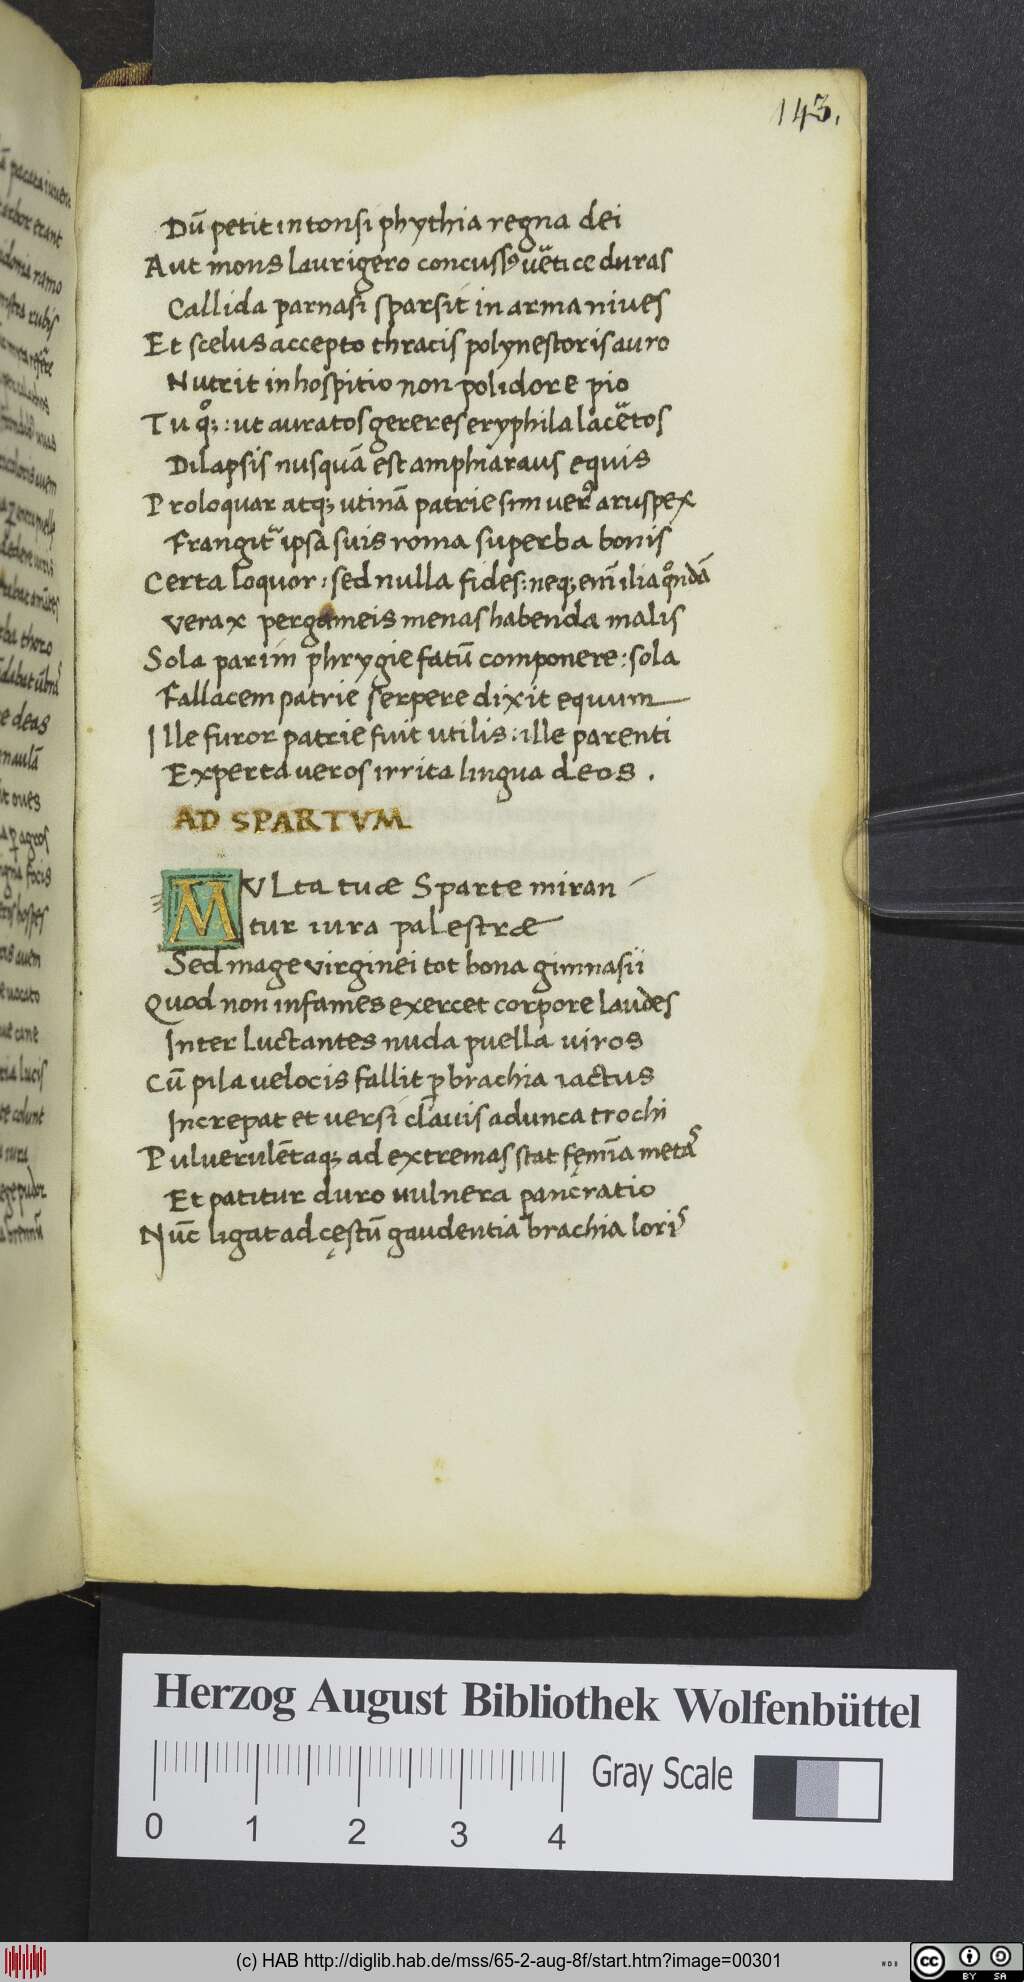 143.
Dū petit intonsi phythia regna dei
Aut mons laurigero concussꝰ uētice duras
Callida parnasi sparsit in arma niues
Et scelus accepto thracis polynestoris auro
Nutrit in hospitio non polidore pio
Tu qͦꝫ: ut auratos gereres eryphila lacētos
Dilapsis nusquā est amphiaraus equis
Proloquar atqꝫ utinā patrie sim uerꝰ aruspex
Frangitᷣ ipsa suis roma superba bonis
Certa loquor: sed nulla fides: neqꝫ enī ilia qͦndā
verax pergameis menas habenda malis
Sola parim phrygie fatū componere: sola
Fallacem patrie serpere dixit equum
Ille furor patrie fuit utilis: ille parenti
Experta ueros irrita lingua deos.
AD SPARTVM
MVLta tuæ Sparte miran
tur iura palestræ
Sed mage virginei tot bona gimnasii
Quod non infames exercet corpore laudes
Inter luctantes nuda puella uiros
Cū pila uelocis fallit ꝑ brachia iactus
Increpat et uersi clauis adunca trochi
Puluerulētaqꝫ ad extremas stat femīa metas
Et patitur duro uulnera pancratio
Nūc ligat ad cęstū gaudentia brachia loris
Herzog August Bibliothek Wolfenbüttel
Gray Scale
0 1 2 3 4
(c) HAB http://diglib.hab.de/mss/65-2-aug-8f/start.htm?image=00301
cc BY SA